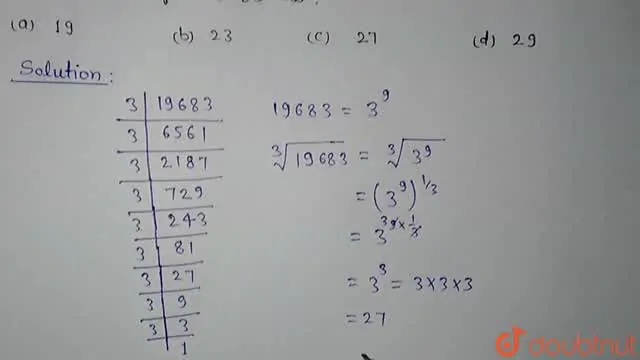 (a) 19 (b) 23 (c) 27 (d) 29
Solution :
3 | 19683
3 | 6561
3 | 2187
3 | 729
3 | 243
3 | 81
3 | 27
3 | 9
3 | 3
1
19683 = 3^9
∛19683 = ∛3^9
= (3^9)^1/3
= 3^{3 9 × 1/3}
= 3^3 = 3×3×3
= 27
doubtnut